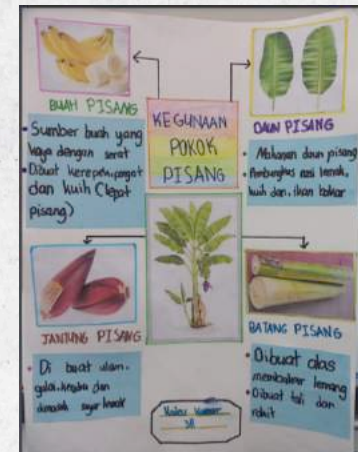 KEGUNAAN
POKOK
PISANG
BUAH PISANG
• Sumber buah yang
kaya dengan serat
• Dibuat kerepek, pengat
dan kuih (lepat
pisang)
DAUN PISANG
• Makanan daun pisang
• Pembungkus nasi lemak,
kuih dan ikan bakar
JANTUNG PISANG
• Di buat ulam,
gulai, kerabu dan
dimasak sayur lemak
BATANG PISANG
• Dibuat alas
membakar lemang
• Dibuat tali dan
rakit
Kumar